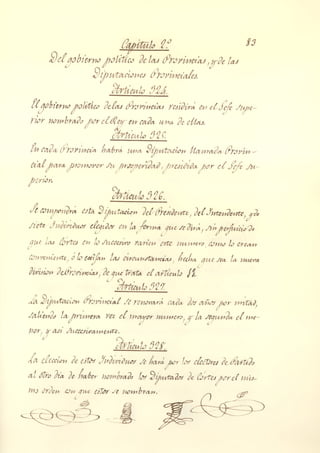 83
Capítulo 2º
Del gobierno político de las Provincias, y de las
Diputaciones Provinciales.
Artículo 324.
El gobierno político de las Provincias residirá en el Jefe Supe-
rior nombrado por el Rey en cada una de ellas.
Artículo 325.
En cada Provincia habrá una Diputacion llamada Provin-
cial, para promover su prosperidad, presidida por el Jefe Su-
perior.
Artículo 326.
Se compondrá esta Diputacion del Presidente, del Intendente, y de
siete Individuos elegidos en la forma que se dirá, sin perjuicio de
que las Cortes en lo sucesivo varíen este número, como lo crean
conveniente, ó lo exijan las circunstancias, hecha que sea la nueva
division de Provincias, de que trata el artículo 11.
Artículo 327.
La Diputacion Provincial se renovará cada dos años por mitad,
saliendo la primera vez el mayor número, y la segunda el me-
nor, y así sucesivamente.
Artículo 328.
La eleccion de estos Individuos se hará por los electores de Partido
al otro dia de haber nombrado los Diputados de Cortes, por el mis-
mo órden con que estos se nombran.